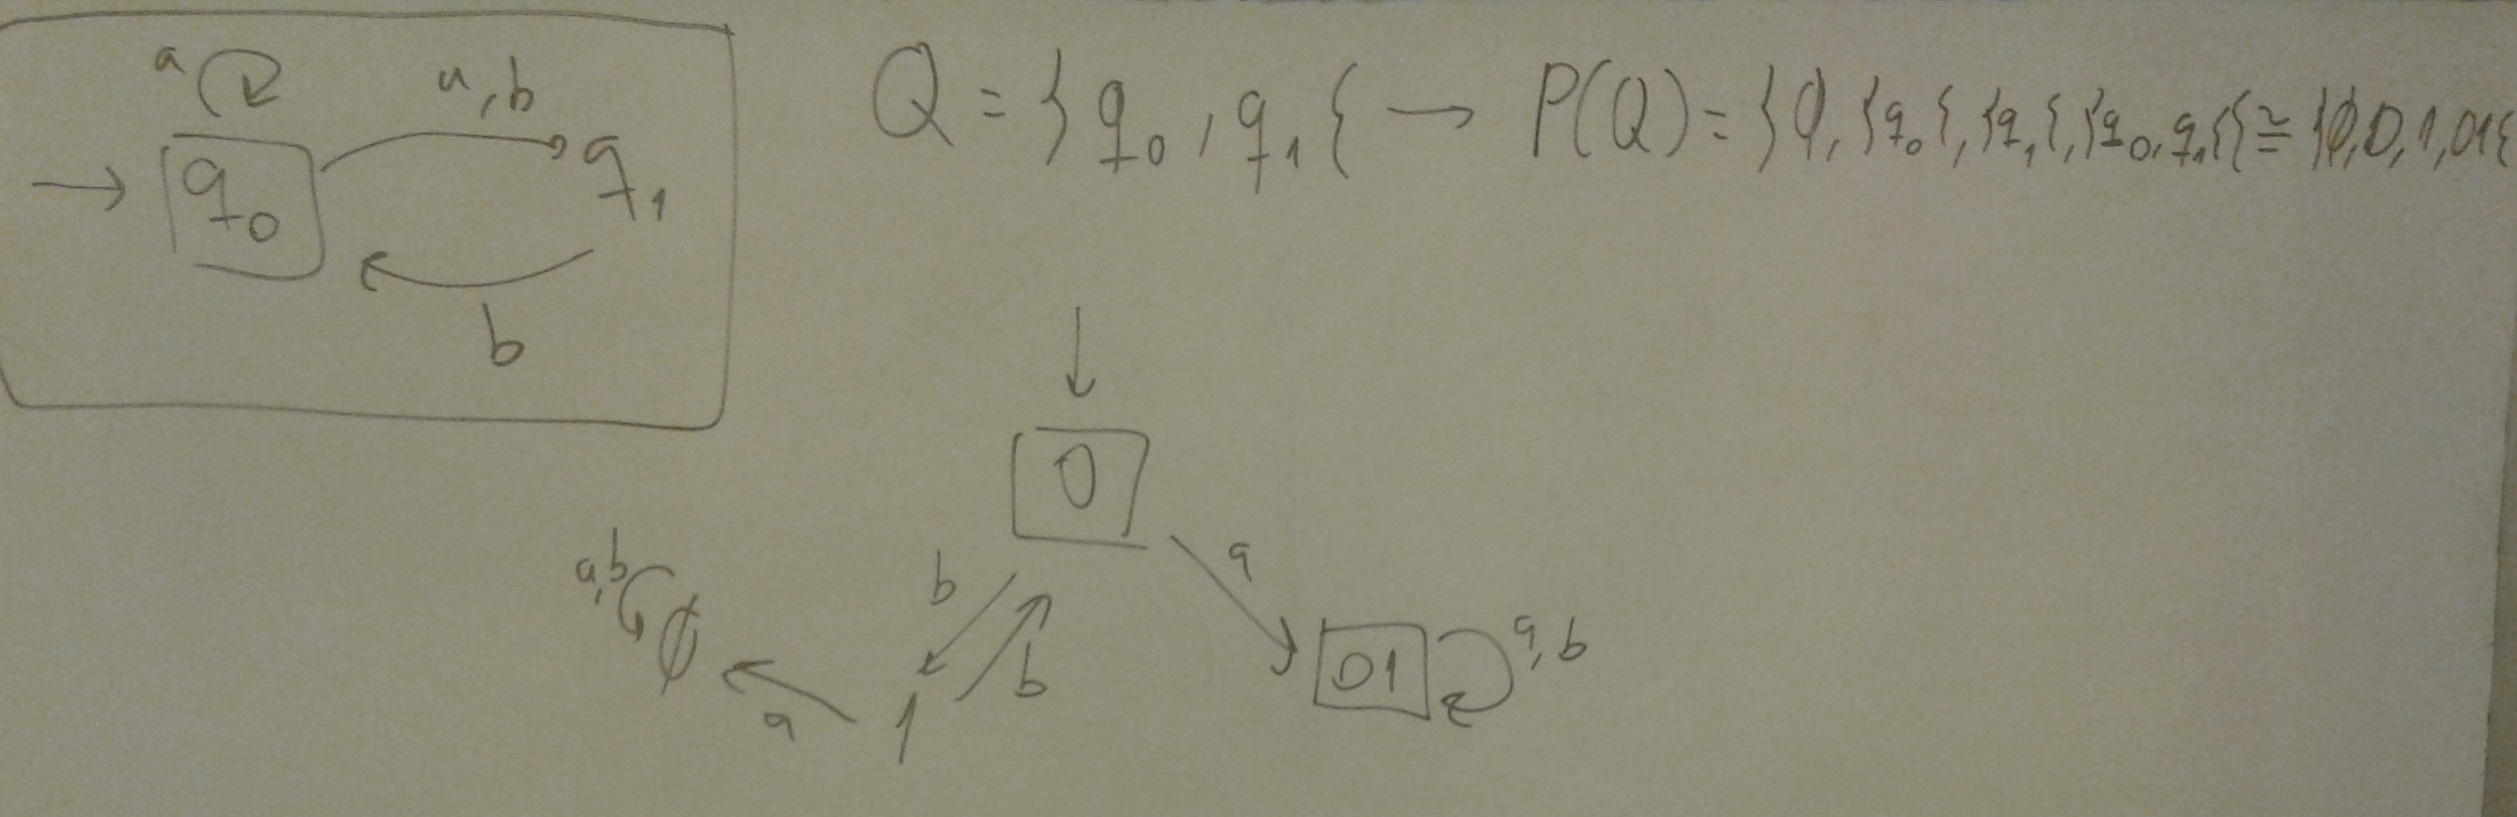 a a,b
q₀ q₁
b
Q = }q₀, q₁{ → P(Q) = }∅, }q₀{, }q₁{, }q₀, q₁{{ ≅ }∅, 0, 1, 01{
0
b a
a,b ∅ b 01 a,b
a 1